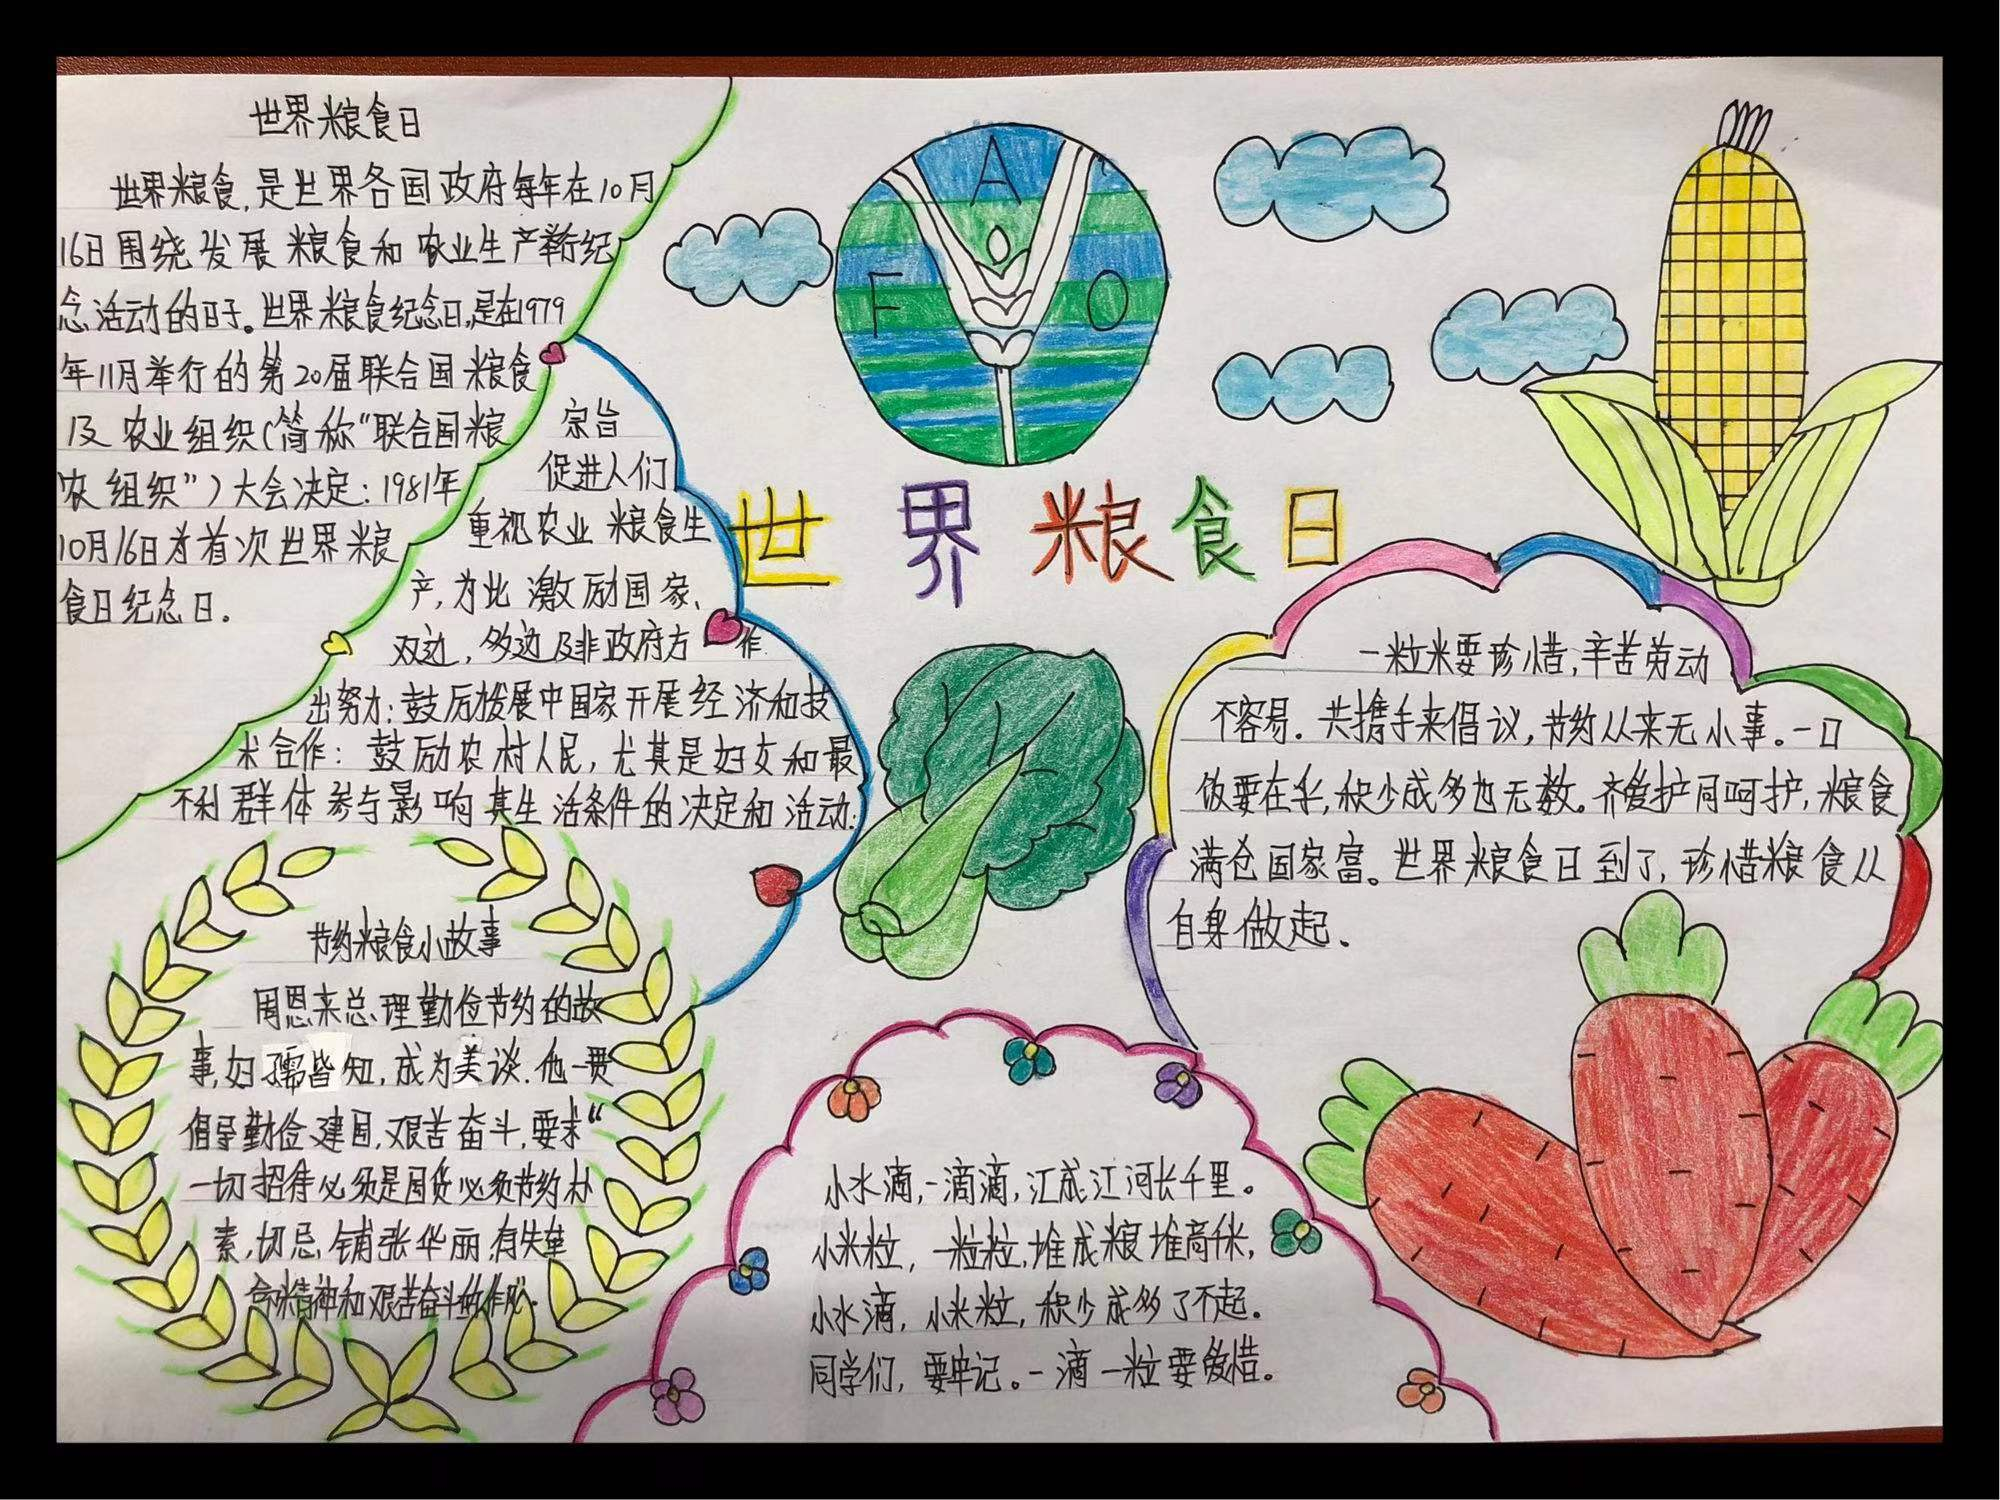 世界粮食日
世界粮食,是世界各国政府每年在10月
16日围绕发展粮食和农业生产举行纪
念活动的日子。世界粮食纪念日,是在1979
年11月举行的第20届联合国粮食
及农业组织(简称"联合国粮
农组织")大会决定:1981年
10月16日为首次世界粮
食日纪念日。
宗旨
促进人们
重视农业粮食生
产,为此激励国家、
双边,多边及非政府方作
出努力:鼓厉发展中国家开展经济和技
术合作:鼓励农村人民,尤其是妇女和最
不利群体参与影响其生活条件的决定和活动:
节约粮食小故事
周恩来总理勤俭节约的故
事,妇孺皆知,成为美谈.他一贯
倡导勤俭建国,艰苦奋斗,要求"
一切招待必须是国货必须节约朴
素,切忌铺张华丽,有失革
命精神和艰苦奋斗的作风.
F A O
世界粮食日
一粒米要珍惜,辛苦劳动
不容易.共携手来倡议,节约从来无小事。一口
饭要在乎,积少成多也无数。齐爱护同呵护,粮食
满仓国家富。世界粮食日到了,珍惜粮食从
自身做起、
小水滴,一滴滴,汇成江河长千里。
小米粒,一粒粒,堆成粮堆高千米,
小水滴,小米粒,积少成多了不起。
同学们,要牢记。一滴一粒要爱惜。